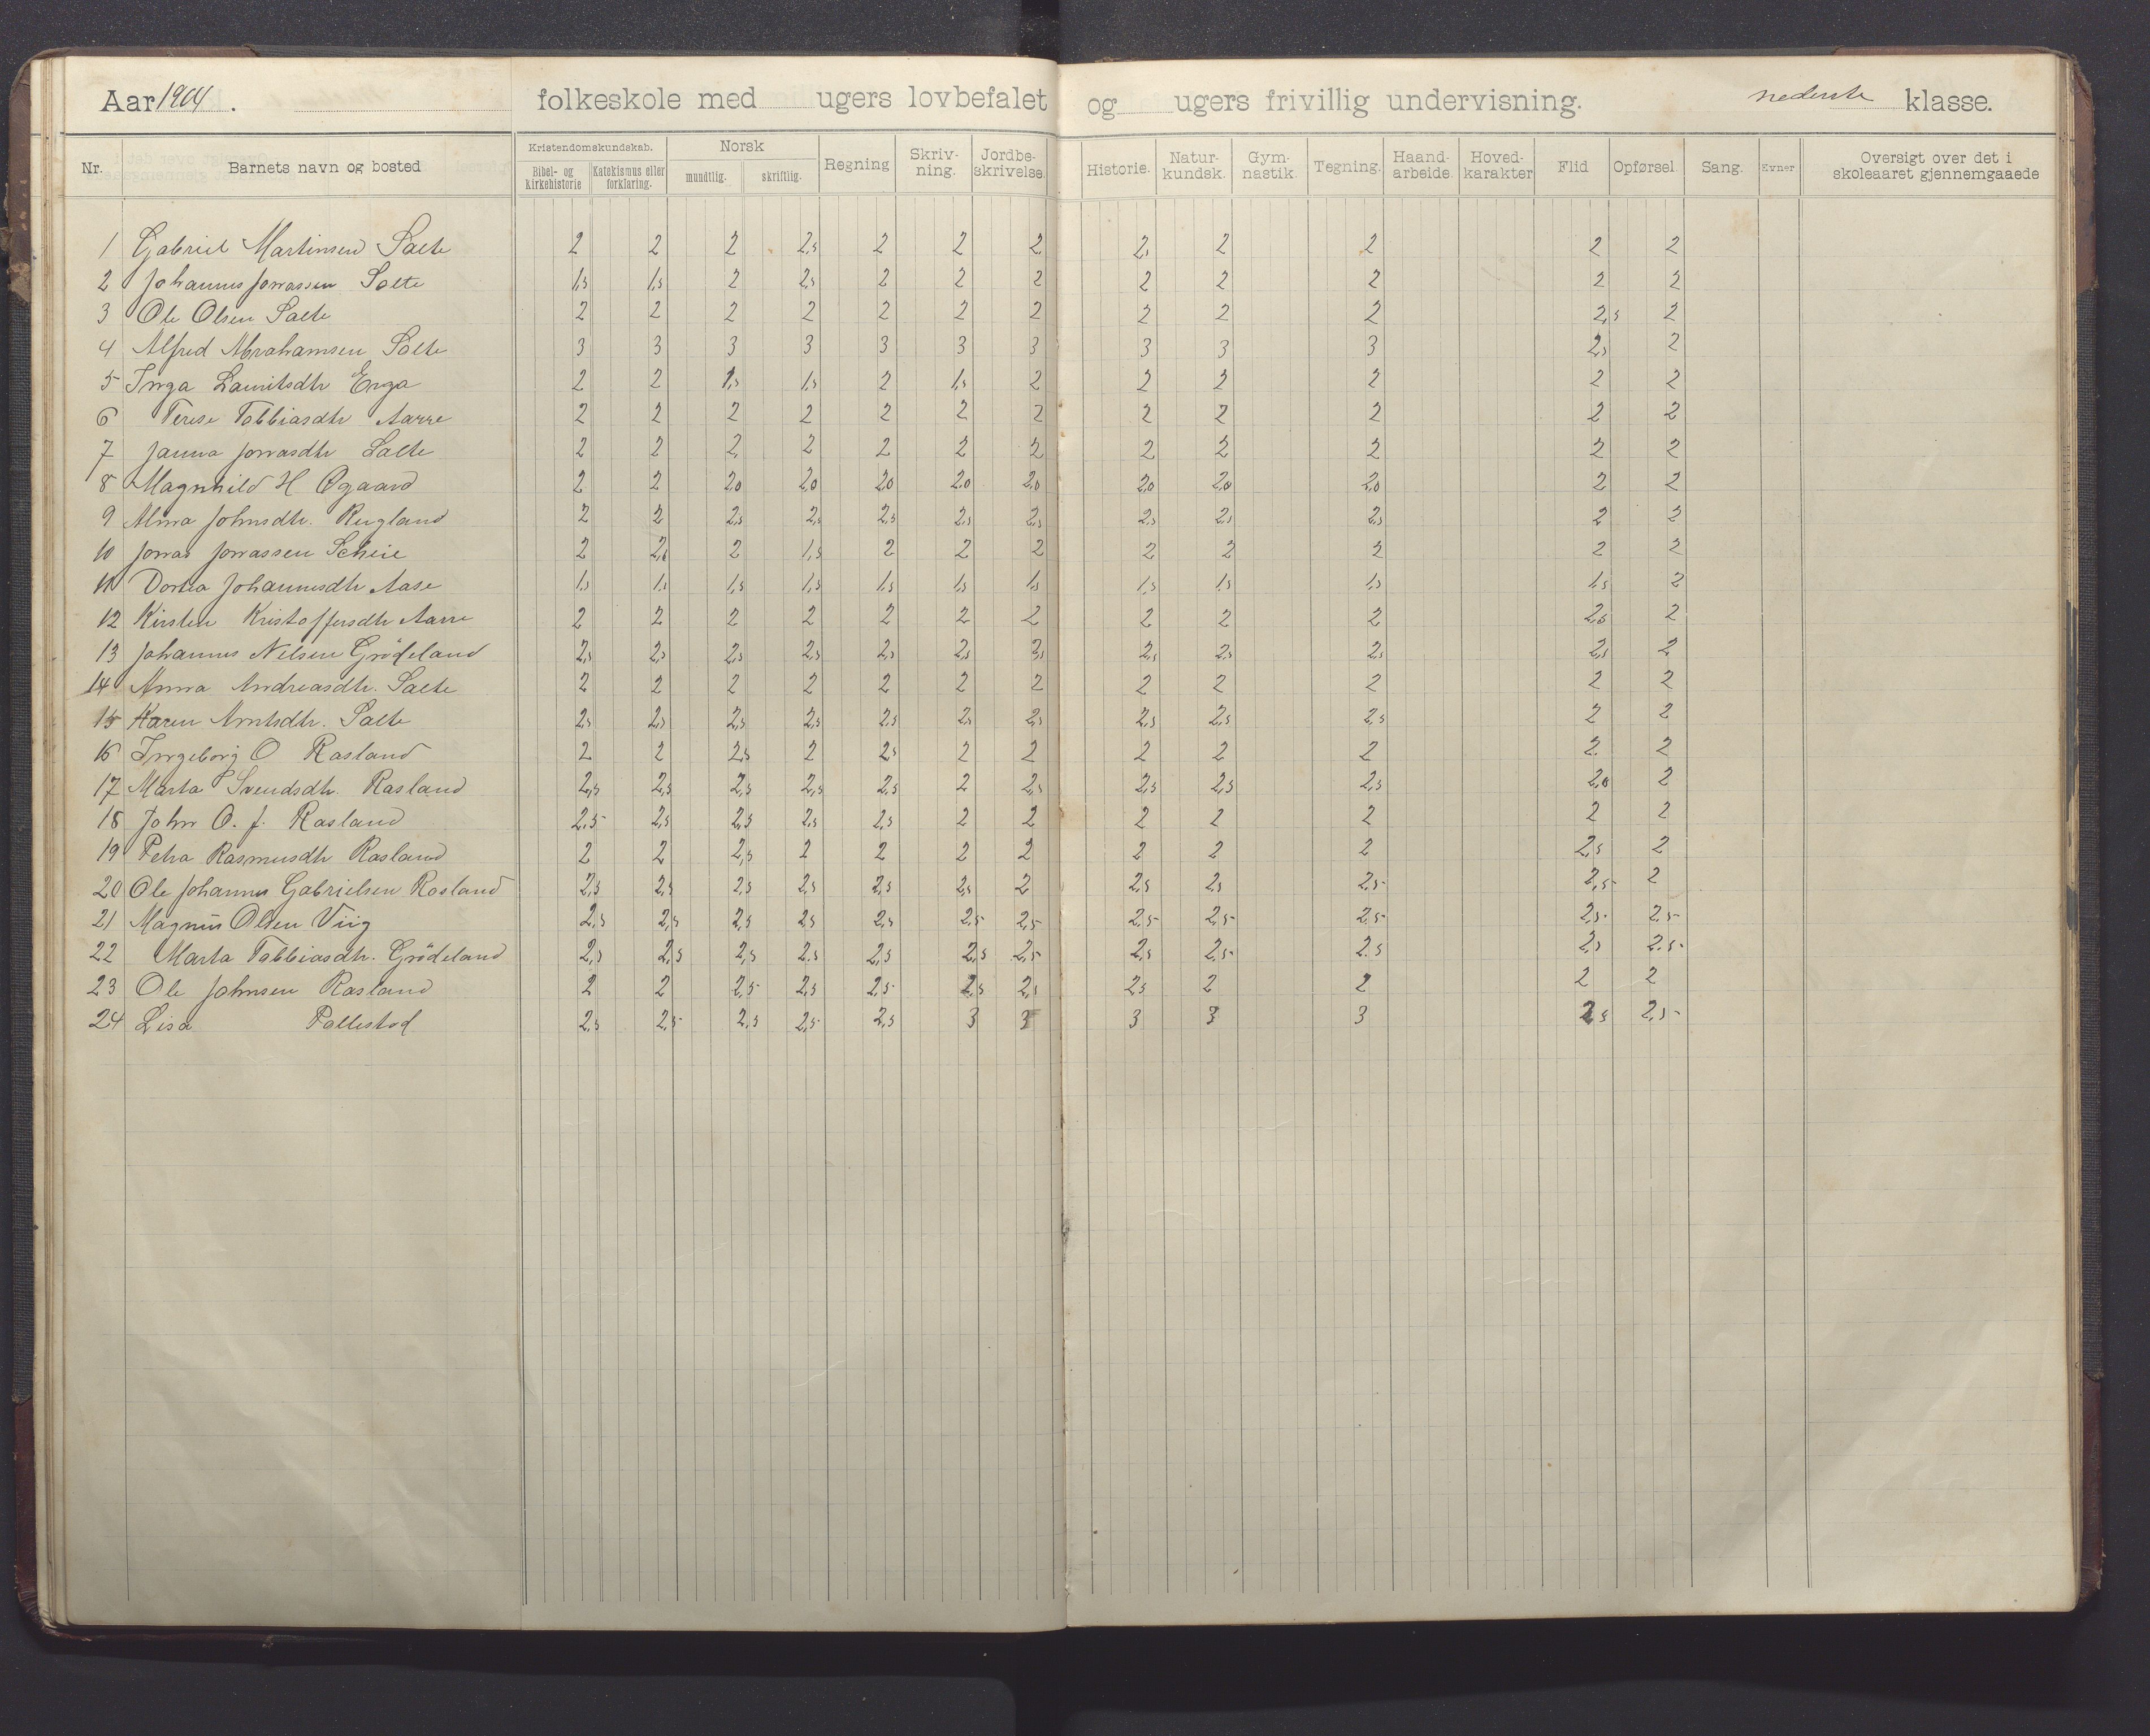 Aar 1904. folkeskole med ugers lovbefalet og ugers frivillig undervisning. nederste klasse.
Nr. Barnets navn og bosted Kristendomskundskab. Bibel- og kirkehistorie Katekismus eller forklaring. Norsk mundtlig. skriftlig. Regning Skriv-ning. Jordbe-skrivelse. Historie. Natur-kundsk. Gym-nastik. Tegning. Haand-arbeide. Hoved-karakter Flid Opførsel. Sang. Evner Oversigt over det i skoleaaret gjennemgaaede
1 Gabriel Martinsen Salte 2 2 2 2,5 2 2 2 2, 2 2 2 2
2 Johannes Jonassen Salte 1,5 1,5 2 2,5 2 2 2 2 2 2 2 2
3 Ole Olsen Salte 2 2 2 2 2 2 2 2 2 2 2,5 2
4 Alfred Abrahamsen Salte 3 3 3 3 3 3 3 3 3 3 2,5 2
5 Inga Lauritsdtr Erga 2 2 1,5 1,5 2 1,5 2 2 2 2 2 2
6 Terese Tobbiasdtr Aarre 2 2 2 2 2 2 2 2 2 2 2 2
7 Janna Jonasdtr Salte 2 2 2 2 2 2 2 2 2 2 2 2
8 Magnhild H Øgaard 2 2 2,0 2,0 2,0 2,0 2,0 2,0 2,0 2,0 2 2
9 Alma Johnsdtr. Rugland 2 2 2,5 2,5 2,5 2,5 2,5 2,5 2,5 2,5 2 2
10 Jonas Jonassen Scheie 2 2,0 2 1,5 2 2 2 2 2 2 2 2
11 Dortea Johannesdtr Aase 1,5 1,5 1,5 1,5 1,5 1,5 1,5 1,5 1,5 1,5 1,5 2
12 Kirsten Kristoffersdtr Aarre 2 2 2 2 2 2 2 2 2 2 2,5 2
13 Johannes Nilsen Grödeland 2,5 2,5 2,5 2,5 2,5 2,5 2,5 2,5 2,5 2,5 2,5 2
14 Anna Andreasdtr. Salte 2 2 2 2 2 2 2 2 2 2 2 2
15 Karen Arntsdtr. Salte 2,5 2,5 2,5 2,5 2,5 2,5 2,5 2,5 2,5 2,5 2 2
16 Ingeborg O Rasland 2 2 2,5 2 2,5 2 2 2 2 2 2 2
17 Marta Svendsdtr. Rasland 2,5 2,5 2,5 2,5 2,5 2 2,5 2,5 2,5 2,5 2,0 2
18 John O. J. Rasland 2,5 2,5 2,5 2,5 2,5 2 2 2 2 2 2 2
19 Petra Rasmusdtr Rasland 2 2 2,5 2 2 2 2 2 2 2 2,5 2
20 Ole Johannes Gabrielsen Rasland 2,5 2,5 2,5 2,5 2,5 2,5 2 2,5 2,5 2,5 2,5 2
21 Magnus Olsen Viig 2,5 2,5 2,5 2,5 2,5 2,5 2,5 2,5 2,5 2,5 2,5 2,5
22 Marta Tobbiasdtr. Grödeland 2,5 2,5 2,5 2,5 2,5 2,5 2,5 2,5 2,5 2,5 2,5 2,5
23 Ole Johnsen Rasland 2 2 2,5 2,5 2,5 2,5 2,5 2,5 2 2 2 2
24 Lisa Pollestad 2,5 2,5 2,5 2,5 2,5 3 3 3 3 3 2,5 2,5